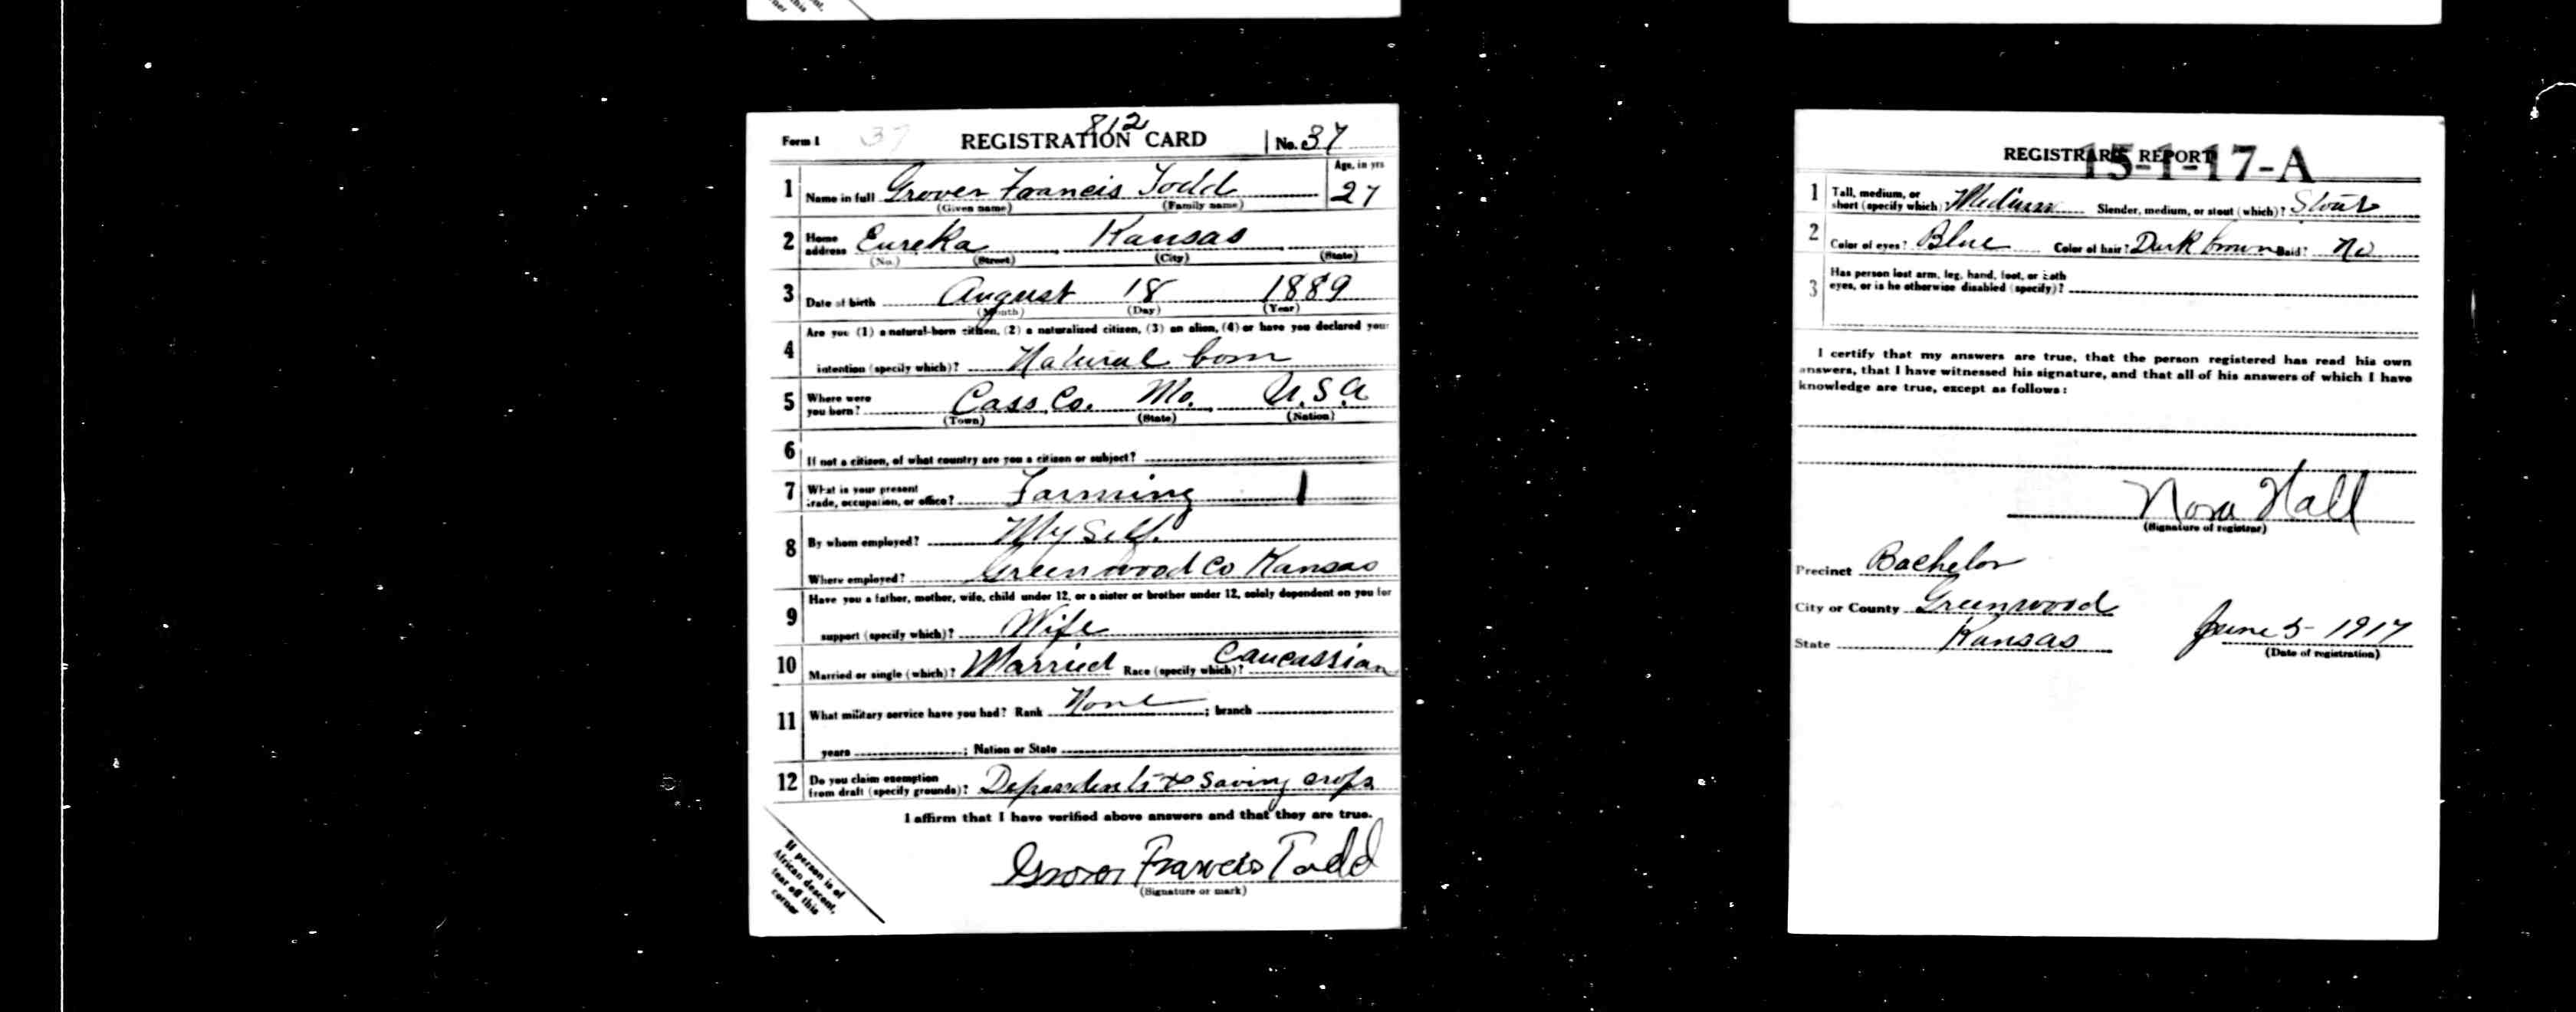 Form 1 37 REGISTRATION CARD 812 No. 37
1 Name in full Grover Francis Todd Age, in yrs 27
(Given name) (Family name)
2 Home address Eureka Kansas
(No.) (Street) (City) (State)
3 Date of birth August 18 1889
(Month) (Day) (Year)
Are you (1) a natural-born citizen, (2) a naturalized citizen, (3) an alien, (4) or have you declared your
4 intention (specify which)? Natural born
5 Where were you born? Cass Co. Mo. U.S.A
(Town) (State) (Nation)
6 If not a citizen, of what country are you a citizen or subject?
7 What is your present trade, occupation, or office? Farming
8 By whom employed? My self.
Where employed? Greenwood Co Kansas
Have you a father, mother, wife, child under 12, or a sister or brother under 12, solely dependent on you for
9 support (specify which)? Wife
10 Married or single (which)? Married Race (specify which)? Caucassian
11 What military service have you had? Rank None ; branch
years ; Nation or State
12 Do you claim exemption from draft (specify grounds)? Dependents & saving crops
I affirm that I have verified above answers and that they are true.
Grover Francis Todd
(Signature or mark)
If person is of
African descent,
tear off this
corner
REGISTRAR'S REPORT 15-1-17-A
1 Tall, medium, or short (specify which) Medium Slender, medium, or stout (which)? Stout
2 Color of eyes? Blue Color of hair? Dark brown Bald? No
3 Has person lost arm, leg, hand, foot, or both
eyes, or is he otherwise disabled (specify)?
I certify that my answers are true, that the person registered has read his own
answers, that I have witnessed his signature, and that all of his answers of which I have
knowledge are true, except as follows:
Nora Hall
(Signature of registrar)
Precinct Bachelor
City or County Greenwood
State Kansas June 5-1917
(Date of registration)